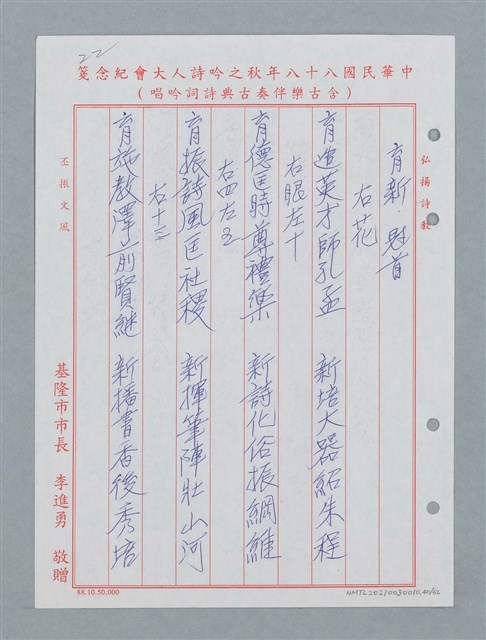 22
中華民國八十八年秋之吟詩人大會紀念箋
（含古樂伴奏古典詩詞吟唱）
弘揚詩教
育新．冠首
右花
育造英才師孔孟　新培大器紹朱程
右眼左十
育德匡時尊禮樂　新詩化俗振綱維
右四左五
育振詩風匡社稷　新揮筆陣壯山河
右十三
育施教澤前賢繼　新播書香後秀培
丕振文風
基隆市市長　李進勇　敬贈
88.10.50.000